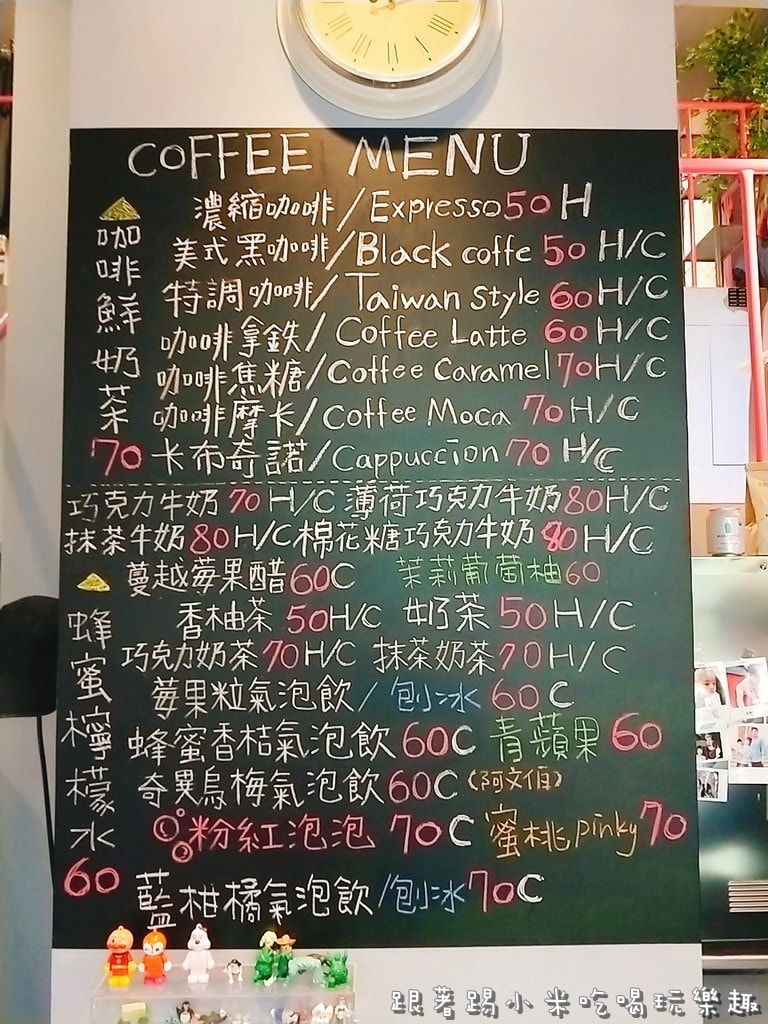 COFFEE MENU
濃縮咖啡/Expresso 50 H
美式黑咖啡/Black coffe 50 H/C
特調咖啡/Taiwan Style 60 H/C
咖啡拿鉄/Coffee Latte 60 H/C
咖啡焦糖/Coffee Caramel 70 H/C
咖啡摩卡/Coffee Moca 70 H/C
卡布奇諾/Cappuccion 70 H/C
咖啡鮮奶茶 70
巧克力牛奶 70 H/C 薄荷巧克力牛奶 80 H/C
抹茶牛奶 80 H/C 棉花糖巧克力牛奶 80 H/C
蔓越莓果醋 60 C 茉莉葡萄柚 60
香柚茶 50 H/C 奶茶 50 H/C
巧克力奶茶 70 H/C 抹茶奶茶 70 H/C
莓果粒氣泡飲/刨冰 60 C
蜂蜜香桔氣泡飲 60 C 青蘋果 60
奇異烏梅氣泡飲 60 C
粉紅泡泡 70 C 蜜桃 pinky 70
藍柑橘氣泡飲/刨冰 70 C
蜂蜜檸檬水 60
跟著踢小米吃喝玩樂趣